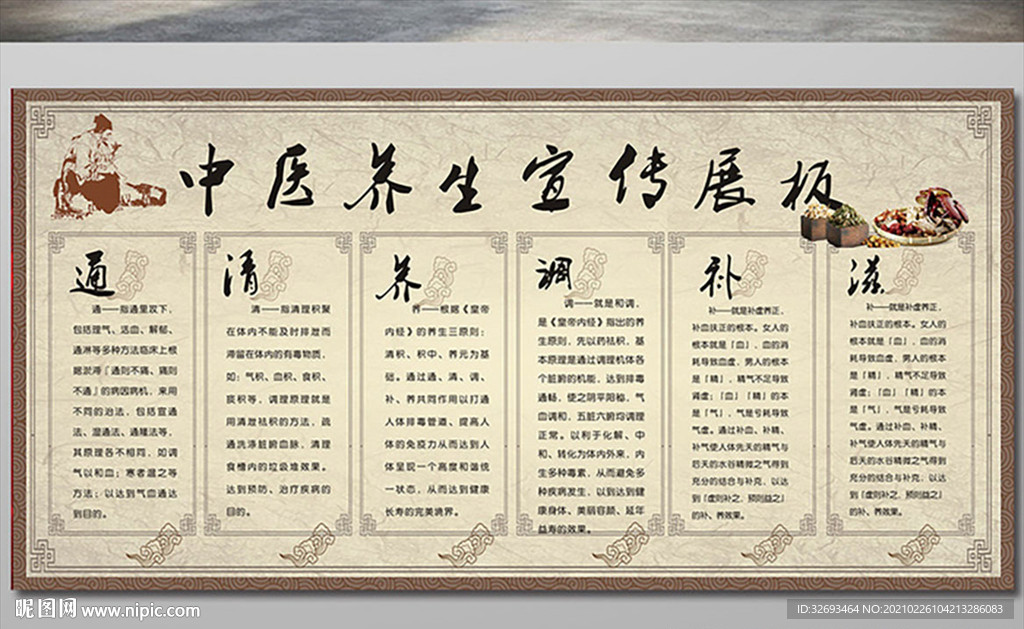 中医养生宣传展板
通
通——指通里攻下，
包括理气、活血、解郁、
通淋等多种方法临床上根
据淤滞『通则不痛、痛则
不通』的病因病机，采用
不同的治法，包括宣通
法、湿通法、通腑法等，
其原理各不相同，如调
气以和血；寒者温之等
方法；以达到气血通达
到目的。
清
清——指清理积聚
在体内不能及时排泄而
滞留在体内的有毒物质，
如：气积、血积、食积、
痰积等，调理原理就是
用清泄祛积的方法，疏
通洗涤脏腑血脉，清理
食槽内的垃圾堆效果。
达到预防、治疗疾病的
目的。
养
养——根据《皇帝
内经》的养生三原则：
清积、积中、养元为基
础。通过通、清、调、
补、养共同作用以打通
人体排毒管道、提高人
体的免疫力从而达到人
体呈现一个高度和谐统
一状态，从而达到健康
长寿的完美境界。
调
调——就是和调，
是《皇帝内经》指出的养
生原则，先以药祛积，基
本原理是通过调理机体各
个脏腑的机能，达到排毒
通畅，使之阴平阳秘，气
血调和，五脏六腑均调理
正常。以利于化解、中
和、转化为体内外来，内
生多种毒素，从而避免多
种疾病发生，以到达到健
康身体、美丽容颜、延年
益寿的效果。
补
补——就是补虚养正，
补血扶正的根本。女人的
根本就是「血」，血的消
耗导致血虚，男人的根本
是「精」，精气不足导致
肾虚；「血」「精」的本
是「气」，气是亏耗导致
气虚。通过补血、补精、
补气使人体先天的精气与
后天的水谷精微之气得到
充分的结合与补充，以达
到「虚则补之，预则益之」
的补、养效果。
滋
补——就是补虚养正，
补血扶正的根本。女人的
根本就是「血」，血的消
耗导致血虚，男人的根本
是「精」，精气不足导致
肾虚；「血」「精」的本
是「气」，气是亏耗导致
气虚。通过补血、补精、
补气使人体先天的精气与
后天的水谷精微之气得到
充分的结合与补充，以达
到「虚则补之，预则益之」
的补、养效果。
昵图网 www.nipic.com
ID:32693464 NO:20210226104213286083